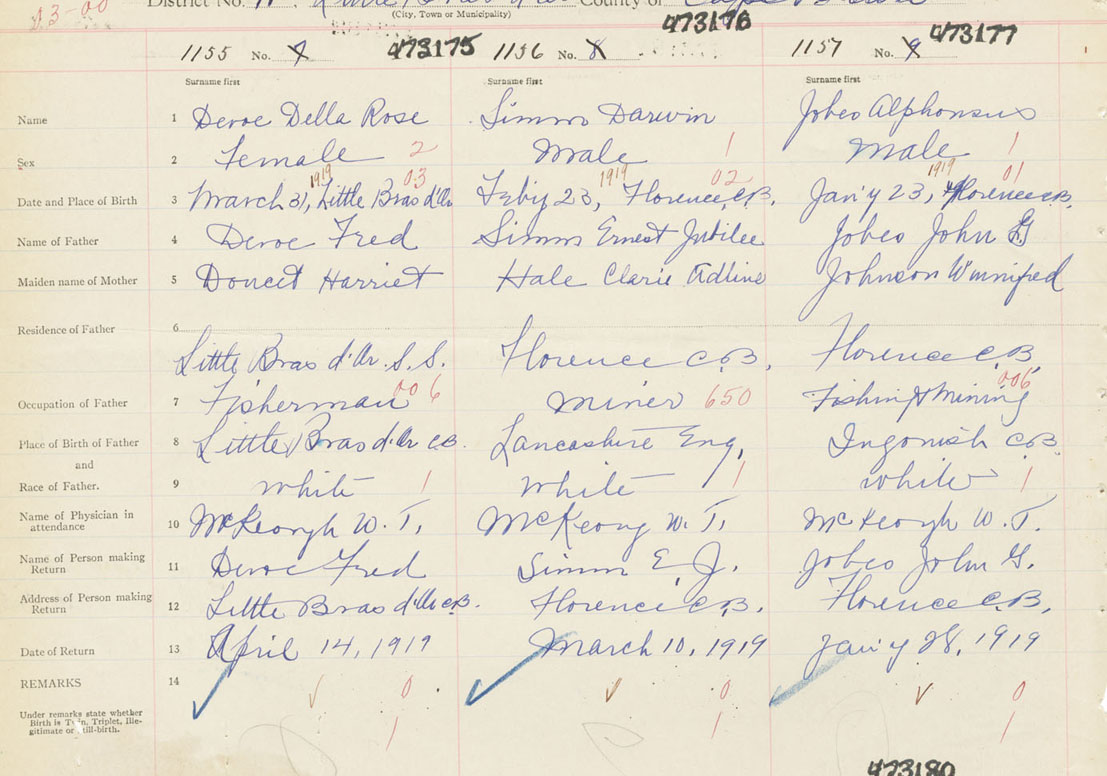 13-00 District No. 11, Little Bras d'Or County of Cape Breton
(City, Town or Municipality)
1155 No. 7 473175 1156 No. 8 473176 1157 No. 9 473177
Surname first Surname first Surname first
Name 1 Deroe Della Rose Simms Darwin Jobeo Alphonsus
Sex 2 Female 2 Male 1 Male 1
1919 03 1919 02 1919 01
Date and Place of Birth 3 March 31, Little Bras d'Or Feb'y 23, Florence, C.B. Jan'y 23, Florence C.B.
Name of Father 4 Deroe Fred Simms Ernest Jubilee Jobeo John G
Maiden name of Mother 5 Doucet Harriet Hale Clarie Adline Johnson Winnifred
Residence of Father 6
Little Bras d'Or. S.S. Florence C.B. Florence C.B.
Occupation of Father 7 Fisherman 006 Miner 650 Fishing & Mining 006
Place of Birth of Father 8 Little Bras d'Or C.B. Lancashire Eng. Ingonish C.B.
and
Race of Father. 9 White 1 White 1 White 1
Name of Physician in
attendance 10 McKeough W. T. McKeoug W. T. McKeough W. T.
Name of Person making
Return 11 Deroe Fred Simms E. J. Jobeo John G.
Address of Person making
Return 12 Little Bras d'Or C.B. Florence C.B. Florence C.B.
Date of Return 13 April 14, 1919 March 10, 1919 Jan'y 28, 1919
REMARKS 14 0 0 0
Under remarks state whether
Birth is Twin, Triplet, Ille-
gitimate or still-birth. 1 1 1
473180